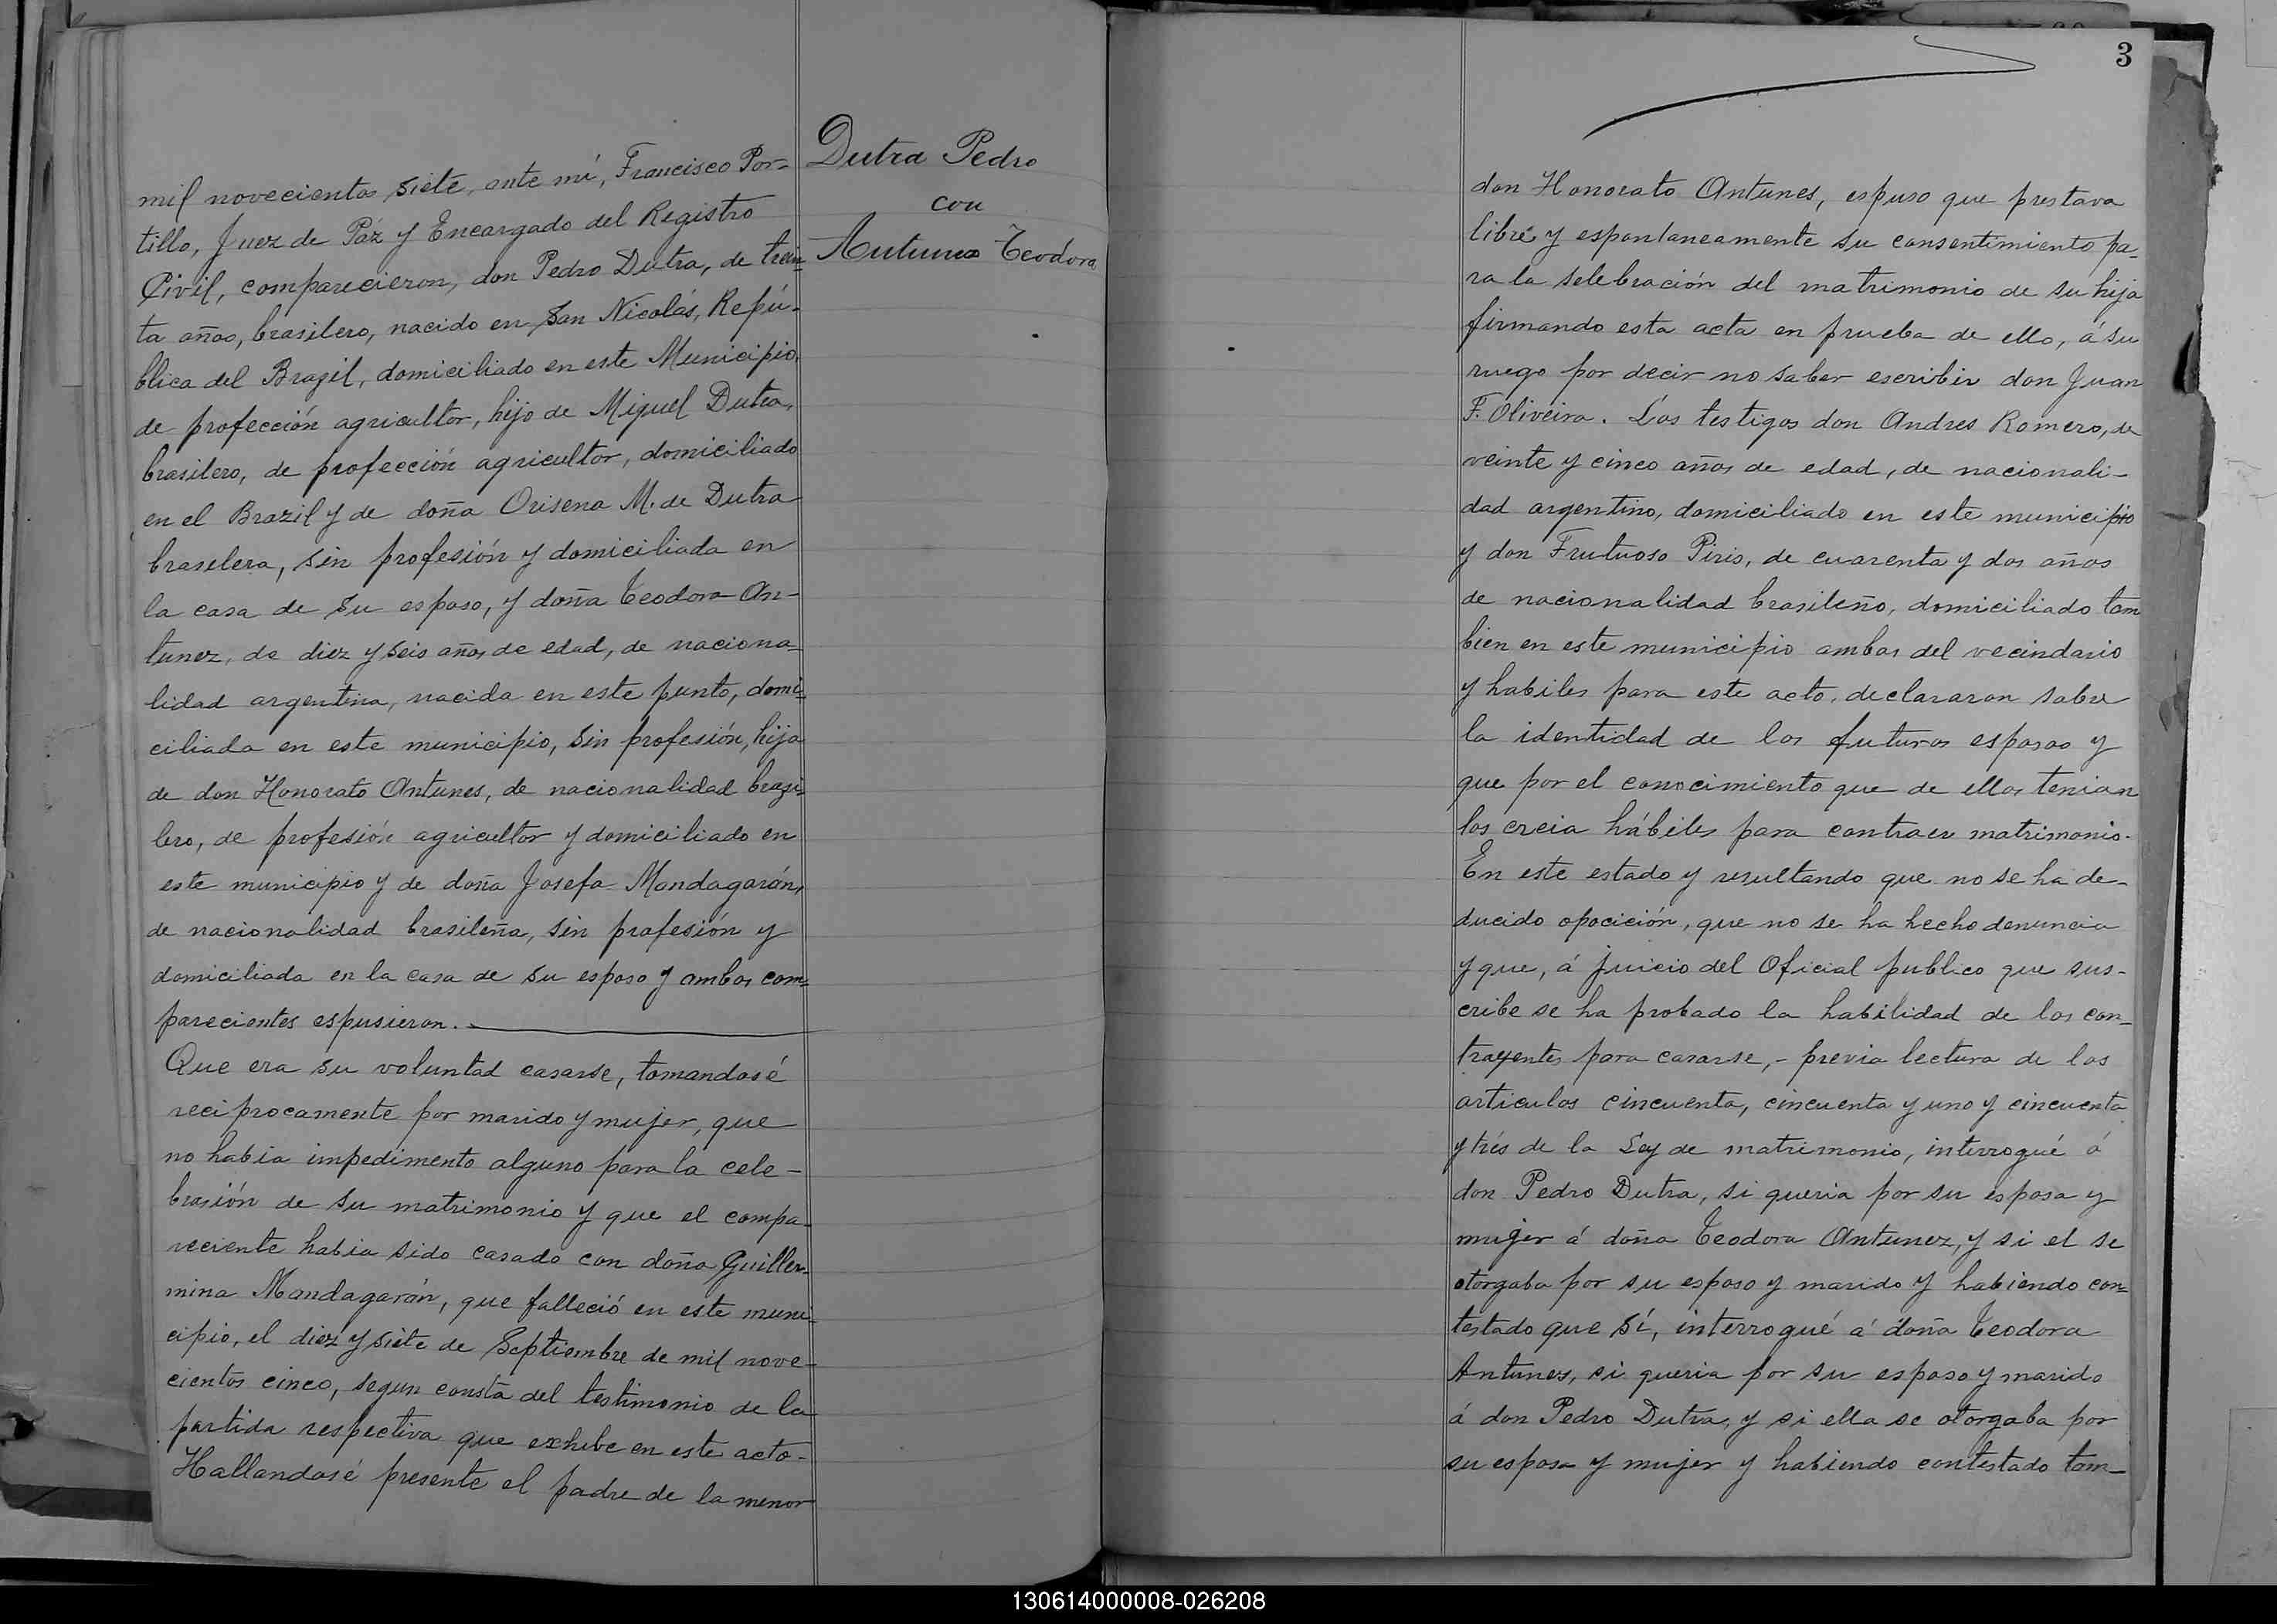 mil novecientos siete, ante mi, Francisco Por-
tillo, Juez de Páz y Encargado del Registro
Civil, comparecieron, don Pedro Dutra, de trein-
ta años, brasilero, nacido en San Nicolás, Repú-
blica del Brazil, domiciliado en este Municipio,
de profección agricultor, hijo de Miguel Dutra,
brasilero, de profección agricultor, domiciliado
en el Brazil y de doña Orisena M. de Dutra
brasilera, sin profesión y domiciliada en
la casa de su esposo, y doña Teodora An-
tunez, de diez y seis años de edad, de naciona-
lidad argentina, nacida en este punto, domi-
ciliada en este municipio, sin profesión, hija
de don Honorato Antunes, de nacionalidad brazi-
lero, de profesión agricultor y domiciliado en
este municipio y de doña Josefa Mandagarán,
de nacionalidad brasileña, sin profesión y
domiciliada en la casa de su esposo y ambos com-
parecientes espusieron.
Que era su voluntad casarse, tomandosé
reciprocamente por marido y mujer, que
no habia impedimento alguno para la cele-
brasión de su matrimonio y que el compa-
reciente habia sido casado con doña Guiller-
mina Mandagarán, que falleció en este muni-
cipio, el diez y siete de Septiembre de mil nove-
cientos cinco, segun consta del testimonio de la
partida respectiva que exhibe en este acto-
Hallandosé presente el padre de la menor
Dutra Pedro
con
Antunes Teodora
3
don Honorato Antunes, espuso que prestava
libre y espontaneamente su consentimiento pa-
ra la selebración del matrimonio de su hija
firmando esta acta en prueba de ello, á su
ruego por decir no saber escribir don Juan
F. Oliveira. Los testigos don Andres Romero, de
veinte y cinco años de edad, de nacionali-
dad argentino, domiciliado en este municipio
y don Frutuoso Piris, de cuarenta y dos años
de nacionalidad brasileño, domiciliado tam
bien en este municipio ambos del vecindario
y habiles para este acto, declararon saber
la identidad de los futuros esposos y
que por el conocimiento que de ellos tenian
los creia hábiles para contraer matrimonio.
En este estado y resultando que no se ha de-
ducido oposición, que no se ha hecho denuncia
y que, á juicio del Oficial publico que sus-
cribe se ha probado la habilidad de los con-
trayentes para casarse,- previa lectura de los
articulos cincuenta, cincuenta y uno y cincuenta
y trés de la Ley de matrimonio, interrogué á
don Pedro Dutra, si queria por su esposa y
mujer á doña Teodora Antunez, y si el se
otorgaba por su esposo y marido y habiendo con-
testado que sí, interrogué á doña Teodora
Antunes, si queria por su esposo y marido
á don Pedro Dutra, y si ella se otorgaba por
su esposa y mujer y habiendo contestado tam-
130614000008-026208